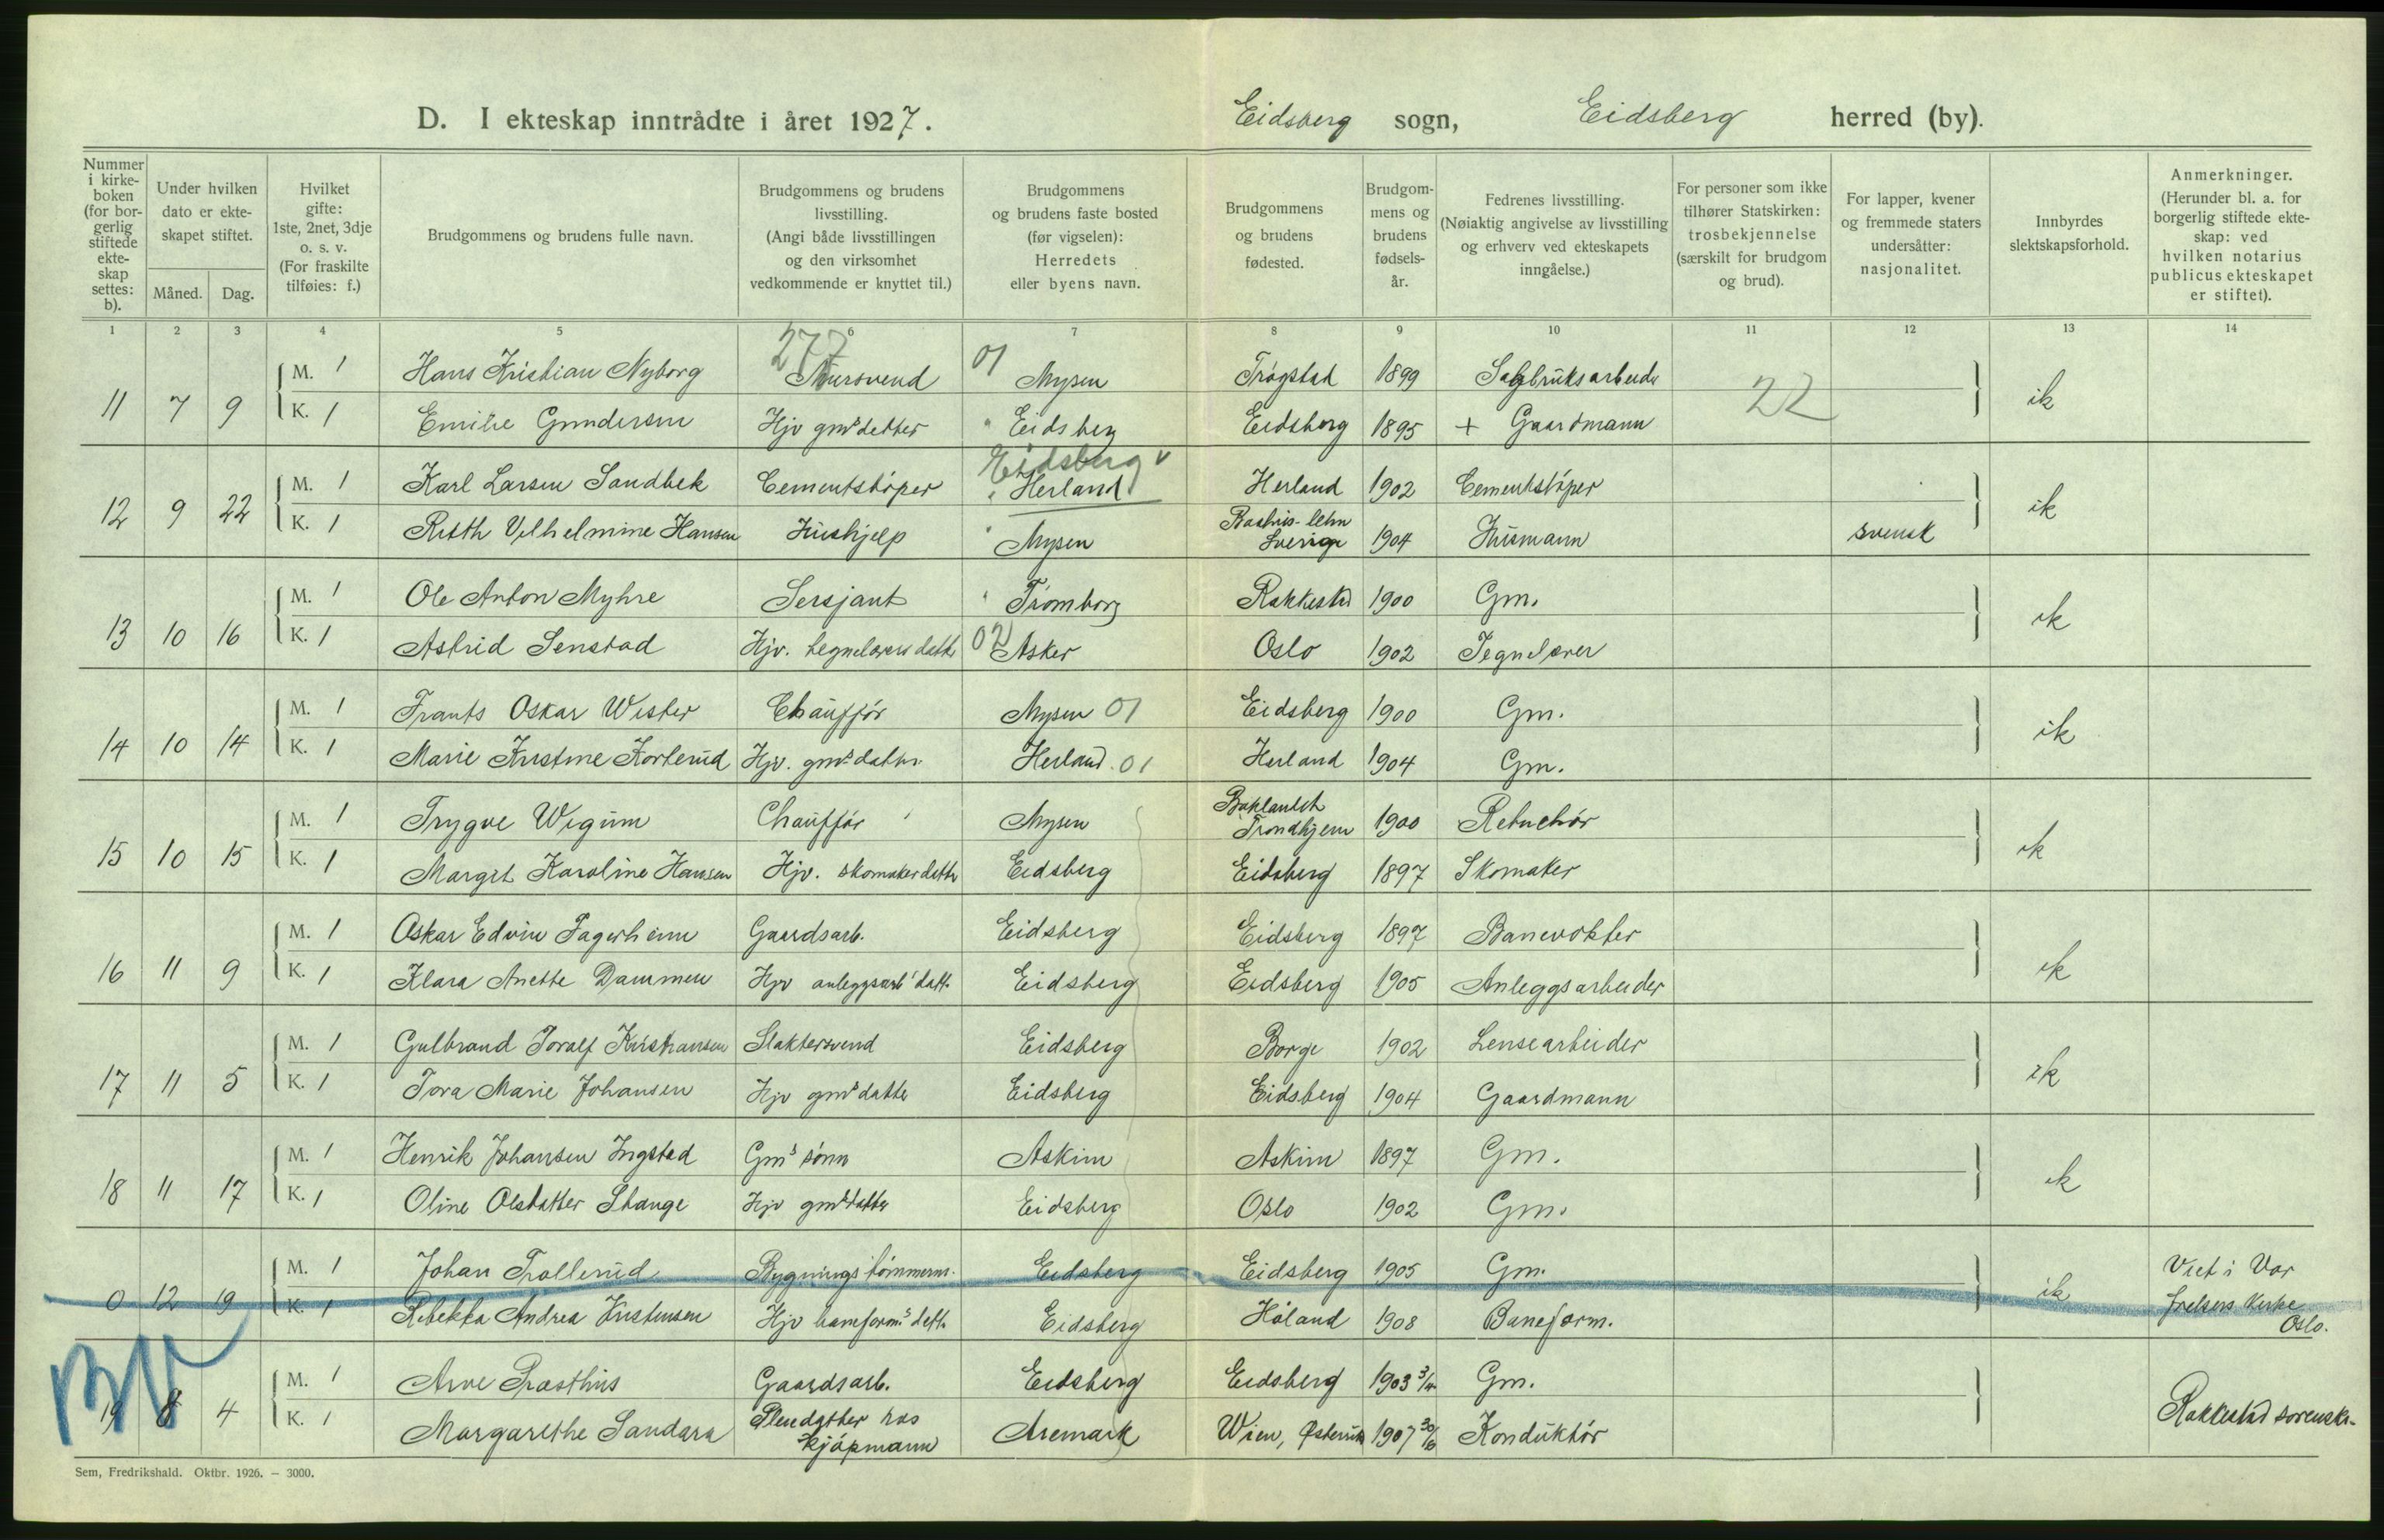 D. I ekteskap inntrådte i året 1927. Eidsberg sogn, Eidsberg herred (by).
Nummer i kirkeboken (for borgerlig stiftede ekteskap settes: b).
Under hvilken dato er ekteskapet stiftet.
Måned. Dag.
Hvilket gifte: 1ste, 2net, 3dje o. s. v. (For fraskilte tilføies: f.)
Brudgommens og brudens fulle navn.
Brudgommens og brudens livsstilling. (Angi både livsstillingen og den virksomhet vedkommende er knyttet til.)
Brudgommens og brudens faste bosted (før vigselen): Herredets eller byens navn.
Brudgommens og brudens fødested.
Brudgommens og brudens fødselsår.
Fedrenes livsstilling. (Nøiaktig angivelse av livsstilling og erhverv ved ekteskapets inngåelse.)
For personer som ikke tilhører Statskirken: trosbekjennelse (særskilt for brudgom og brud).
For lapper, kvener og fremmede staters undersåtter: nasjonalitet.
Innbyrdes slektskapsforhold.
Anmerkninger. (Herunder bl. a. for borgerlig stiftede ekteskap: ved hvilken notarius publicus ekteskapet er stiftet).
1 2 3 4 5 6 7 8 9 10 11 12 13 14
277 01 22
M. 1 Hans Kristian Nyborg Mursvend Mysen Trøgstad 1899 Sagbruksarbeider
11 7 9 K. 1 Emilie Gundersen Hjv gms datter " Eidsberg Eidsberg 1895 + Gaardmann ik
Eidsberg v
M. 1 Karl Larsen Sandbek Cementstøper " Herland Herland 1902 Cementstøper
12 9 22 K. 1 Ruth Vilhelmine Hansen Hushjelp " Mysen Sverige 1904 Husmann svensk ik
M. 1 Ole Anton Myhre Sersjant " Trømborg Rakkestad 1900 Gm.
13 10 16 K. 1 Astrid Senstad Hjv. tegnelærers datter 02 Asker Oslo 1902 Tegnelærer ik
M. 1 Frants Oskar Wister Chauffør Mysen 01 Eidsberg 1900 Gm.
14 10 14 K. 1 Marie Kristine Korterud Hjv. gms datter Herland 01 Herland 1904 Gm. ik
M. 1 Trygve Wigum Chauffør Mysen Baklandet Trondhjem 1900 Retuchør
15 10 15 K. 1 Margit Karoline Hansen Hjv. skomakerdatter Eidsberg Eidsberg 1897 Skomaker ik
M. 1 Oskar Edvin Fagerheim Gaardsarb. Eidsberg Eidsberg 1897 Banevokter
16 11 9 K. 1 Klara Anette Dammen Hjv anleggsarb' datt. Eidsberg Eidsberg 1905 Anleggsarbeider ik
M. 1 Gulbrand Toralf Kristiansen Slaktersvend Eidsberg Borge 1902 Lensearbeider
17 11 5 K. 1 Tora Marie Johansen Hjv gms datter Eidsberg Eidsberg 1904 Gaardmann ik
M. 1 Henrik Johansen Ingstad Gms sønn Askim Askim 1897 Gm.
18 11 17 K. 1 Oline Olsdatter Stange Hjv gms datter Eidsberg Oslo 1902 Gm. ik
M. 1 Johan Trollerud Bygningstømmerm. Eidsberg Eidsberg 1905 Gm. Viet i Vor
0 12 19 K. 1 Rebekka Andrea Kristensen Hjv baneform.s dett. Eidsberg Høland 1908 Baneform. ik Frelsers Kirke
Oslo.
M. 1 Arve Prasthus Gaardsarb. Eidsberg Eidsberg 1903 3/4 Gm.
19 8 4 K. 1 Margarethe Sandara Pleiedatter hos kjøpmann Aremark Wien, Østerrik 1907 30/6 Konduktør Rakkestad sorenskr.
Sem, Fredrikshald. Oktbr. 1926. – 3000.